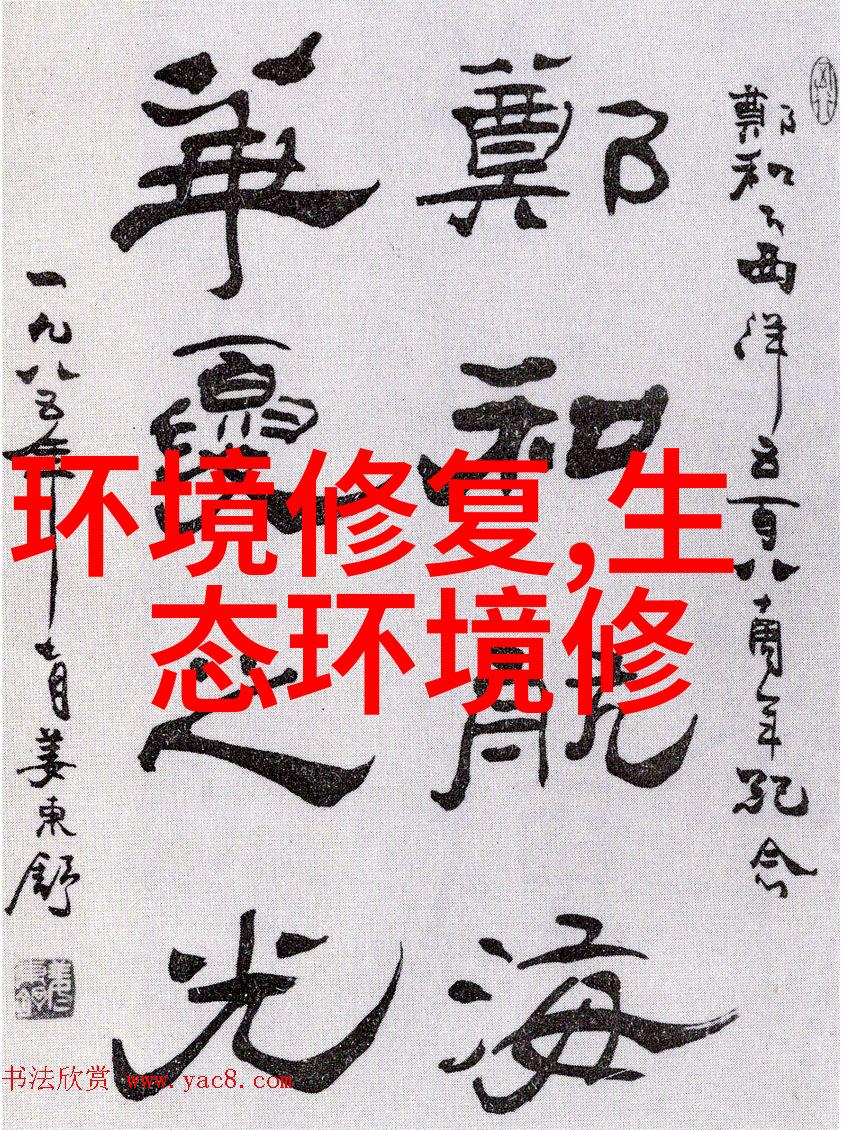 环境修复,生
态环境修
鄭和下西洋五百八十周年紀念
鄭和航海
華夏之光
一九八五年月姜東舒
书法欣赏 www.yac8.com